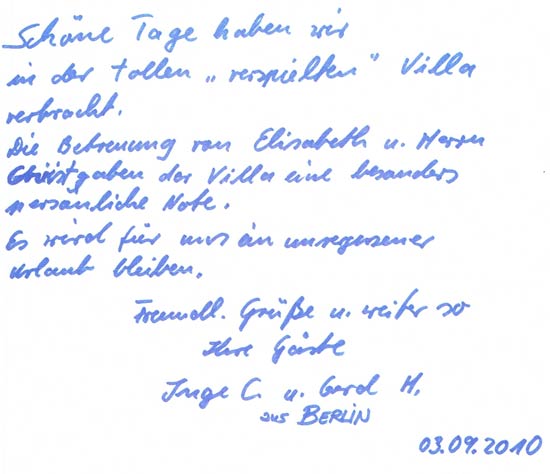 Schöne Tage haben wir
in der tollen „verspielten" Villa
verbracht.
Die Betreuung von Elisabeth u. Herrn
gaben der Villa eine besonders
persönliche Note.
Es wird für uns ein unvergessener
Urlaub bleiben.
Freundl. Grüße u. weiter so
Ihre Gäste
Inge C. u. Gerd H.
aus BERLIN
03.09.2010